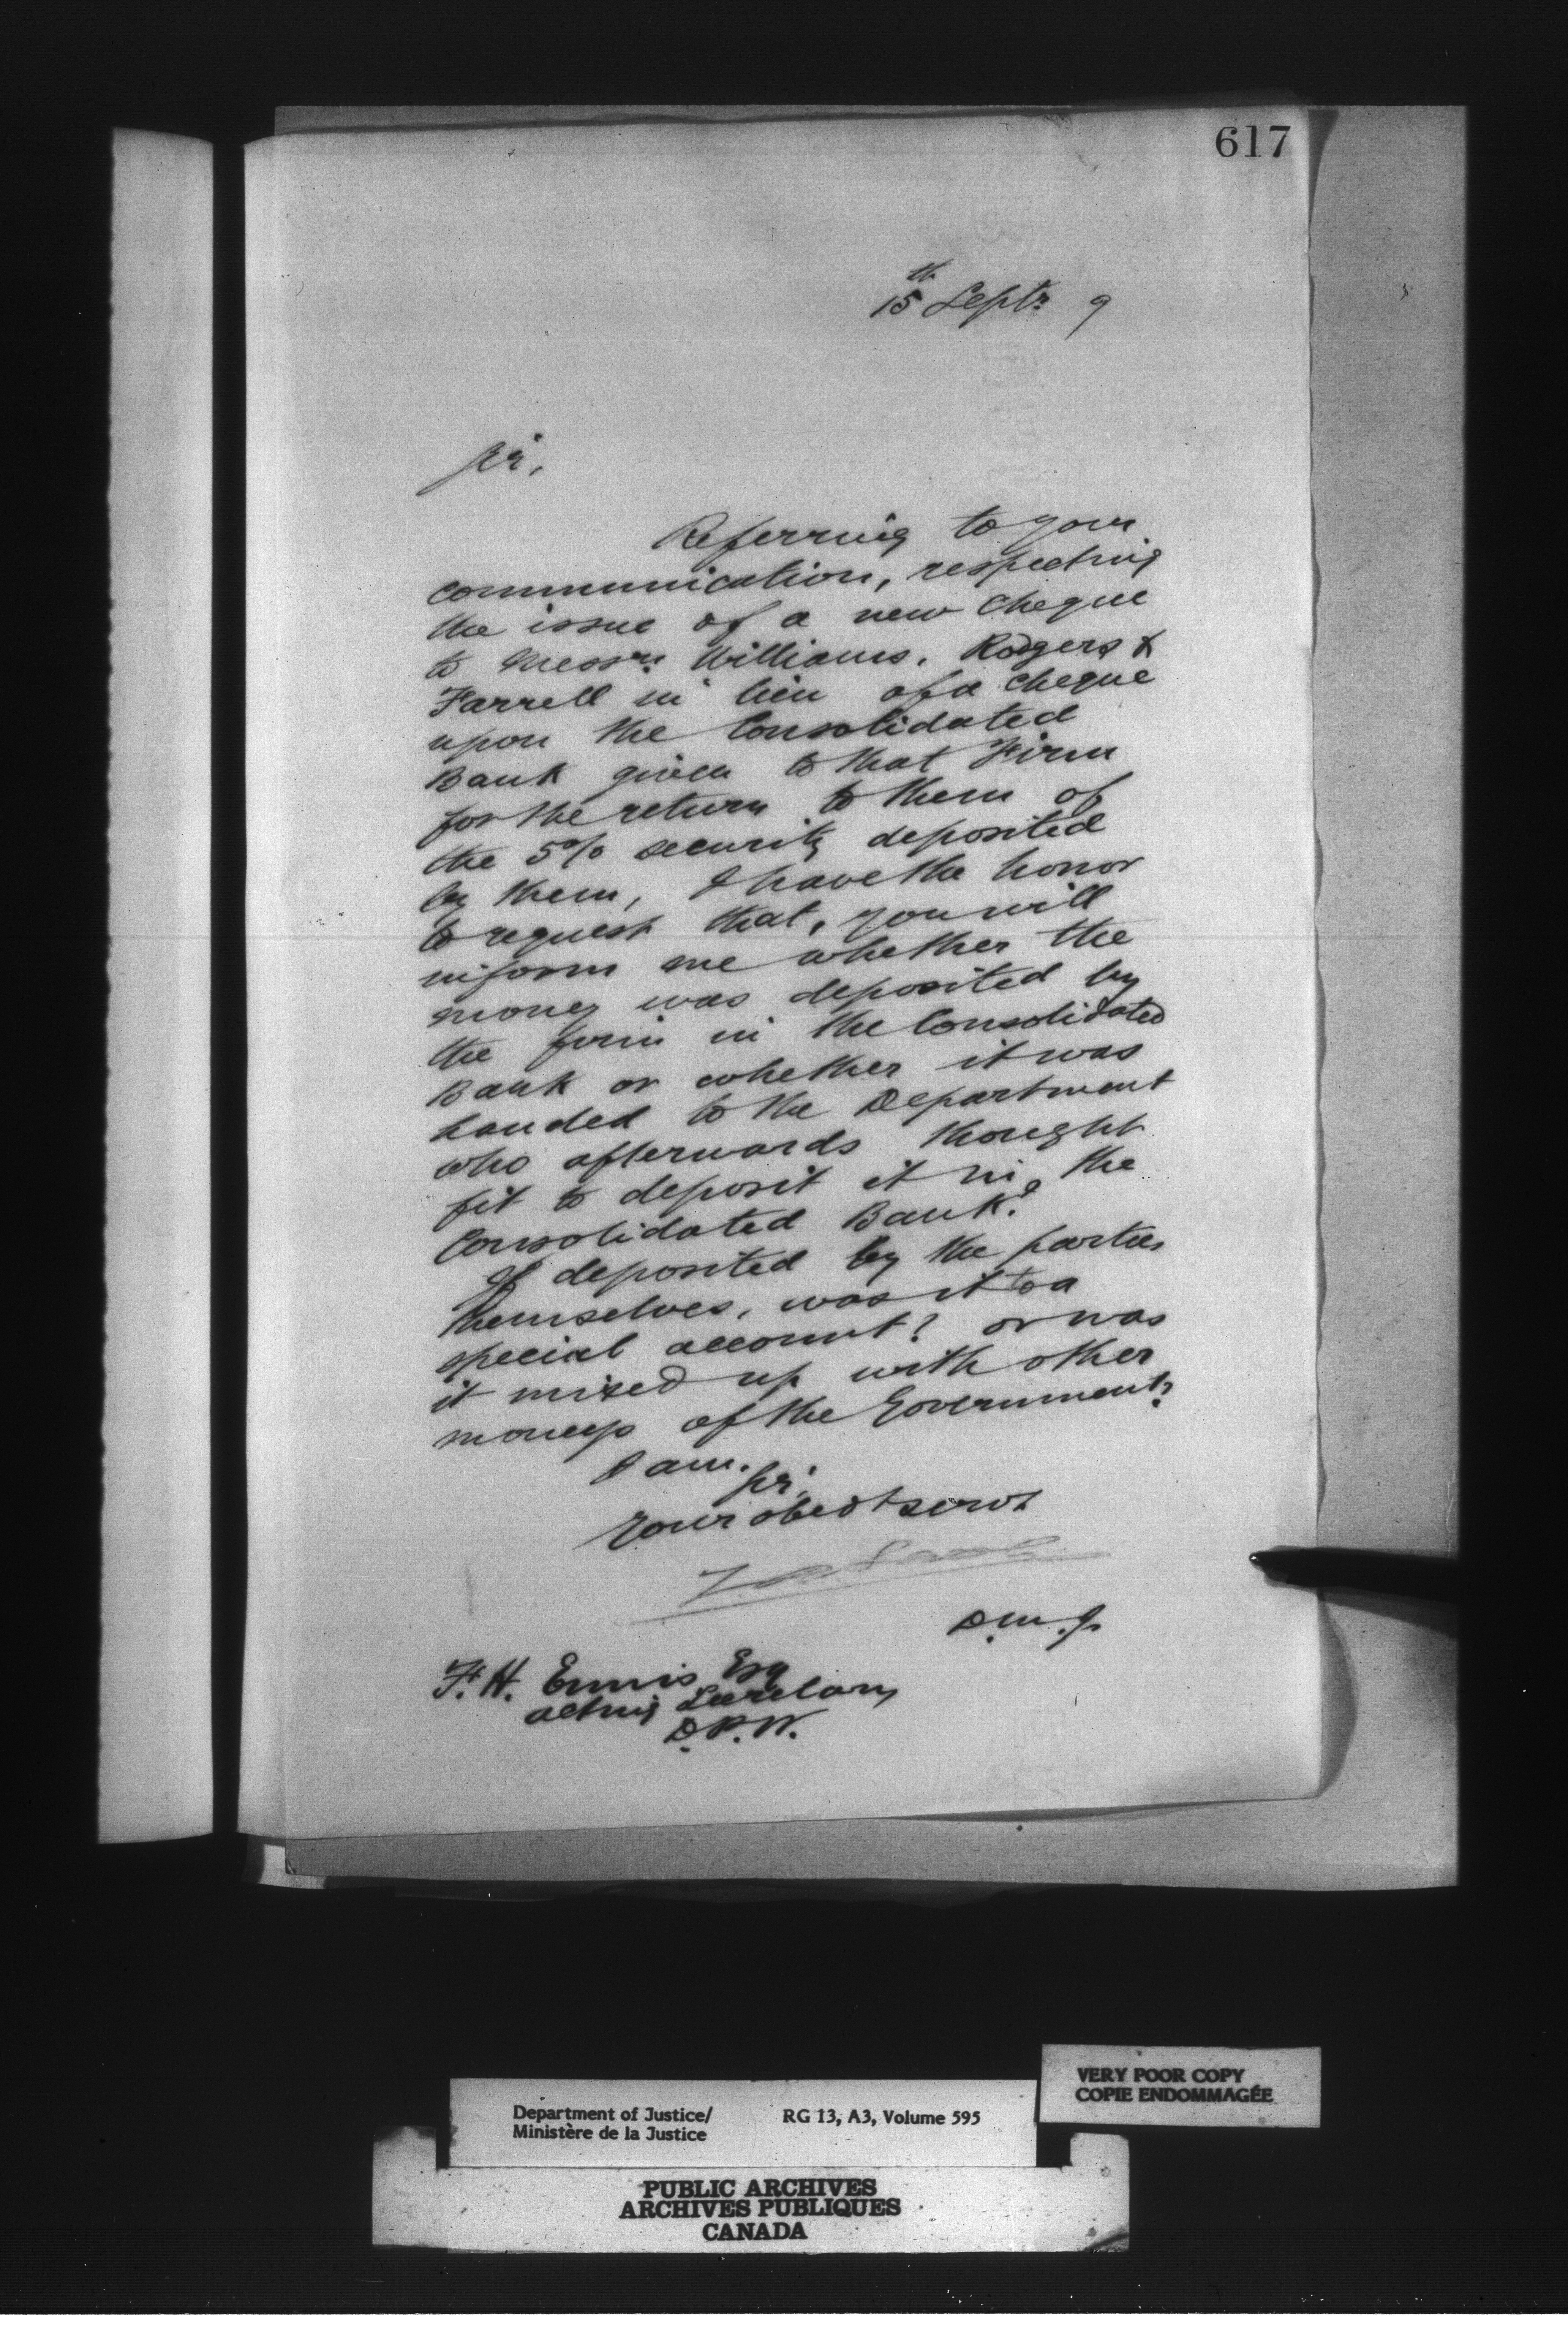 617
15th Septr 9
Sir,
Referring to your
communication, respecting
the issue of a new cheque
to Messrs. Williams, Rodgers &
Farrell in lieu of a cheque
upon the Consolidated
Bank given to that Firm
for the return to them of
the 5% security deposited
by them, I have the honor
to request that, you will
inform me whether the
money was deposited by
the firm in the Consolidated
Bank or whether it was
handed to the Department
who afterwards thought
fit to deposit it in the
Consolidated Bank?
If deposited by the parties
themselves, was it to a
special account? or was
it mixed up with other
moneys of the Government?
I am.
Sir,
Your obedt servt
D.M.J.
F. H. Ennis Esq
acting Secretary
D.P.W.
VERY POOR COPY
COPIE ENDOMMAGÉE
Department of Justice/ RG 13, A3, Volume 595
Ministère de la Justice
PUBLIC ARCHIVES
ARCHIVES PUBLIQUES
CANADA